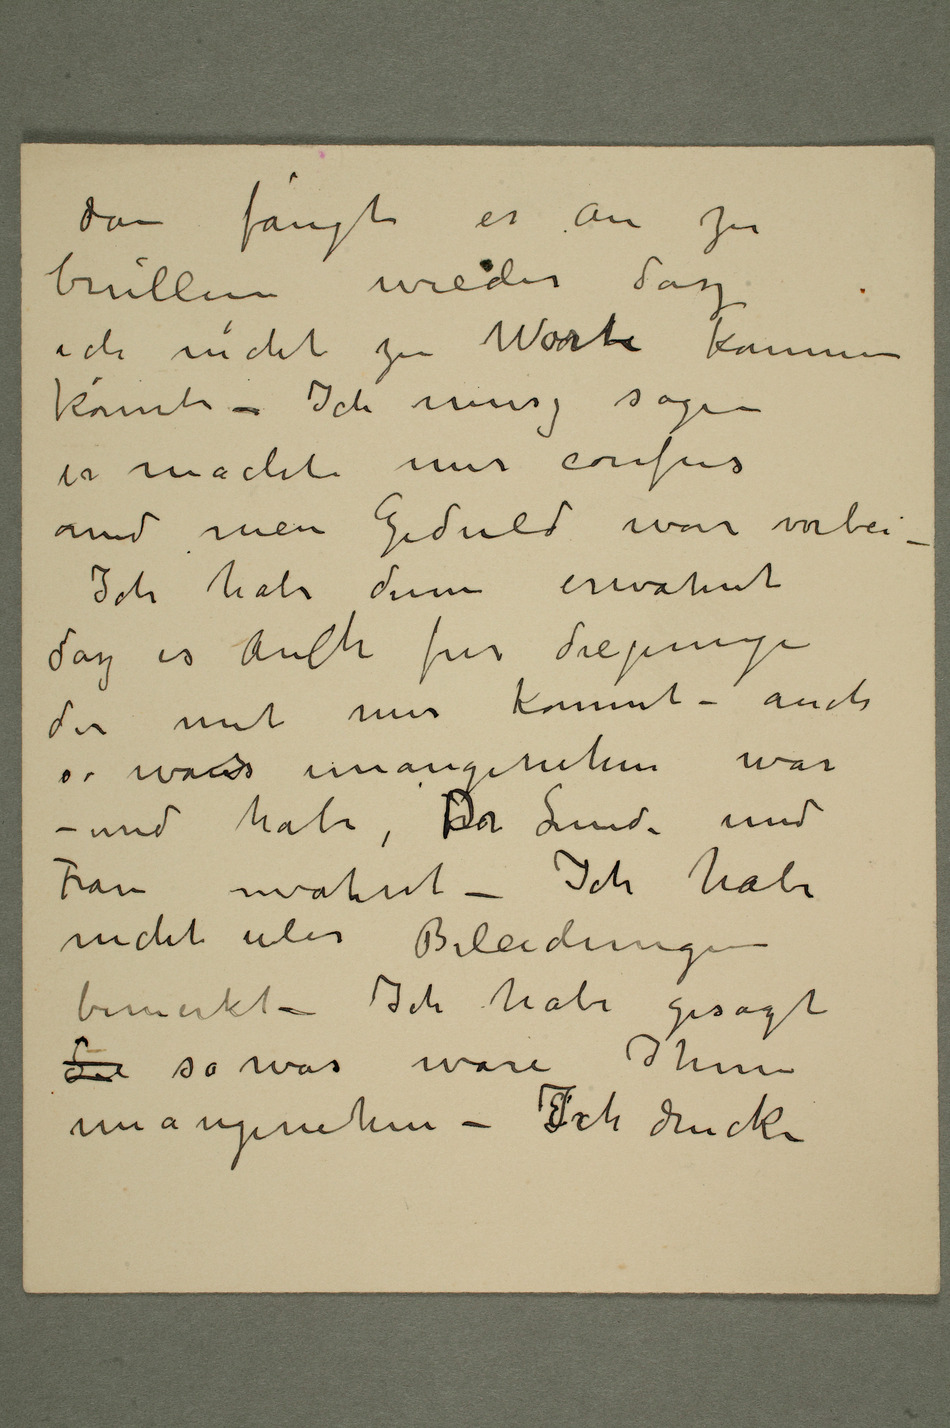 dan fängt er an zu
brüllen wieder dasz
ich nicht zu Worte kommen
könnte – Ich musz sagen
er machte mir confus
und mein Geduld war vorbei –
Ich habe denn erwähnt
dasz es auch für diejenige
der mit mir kommt – auch
so was unangenehm war
– und habe, Dr Linde und
Frau erwähnt – Ich habe
nicht über Beleidungen
bemerkt – Ich habe gesagt
so was wäre Ihnen
unangenehm – Ich drucke